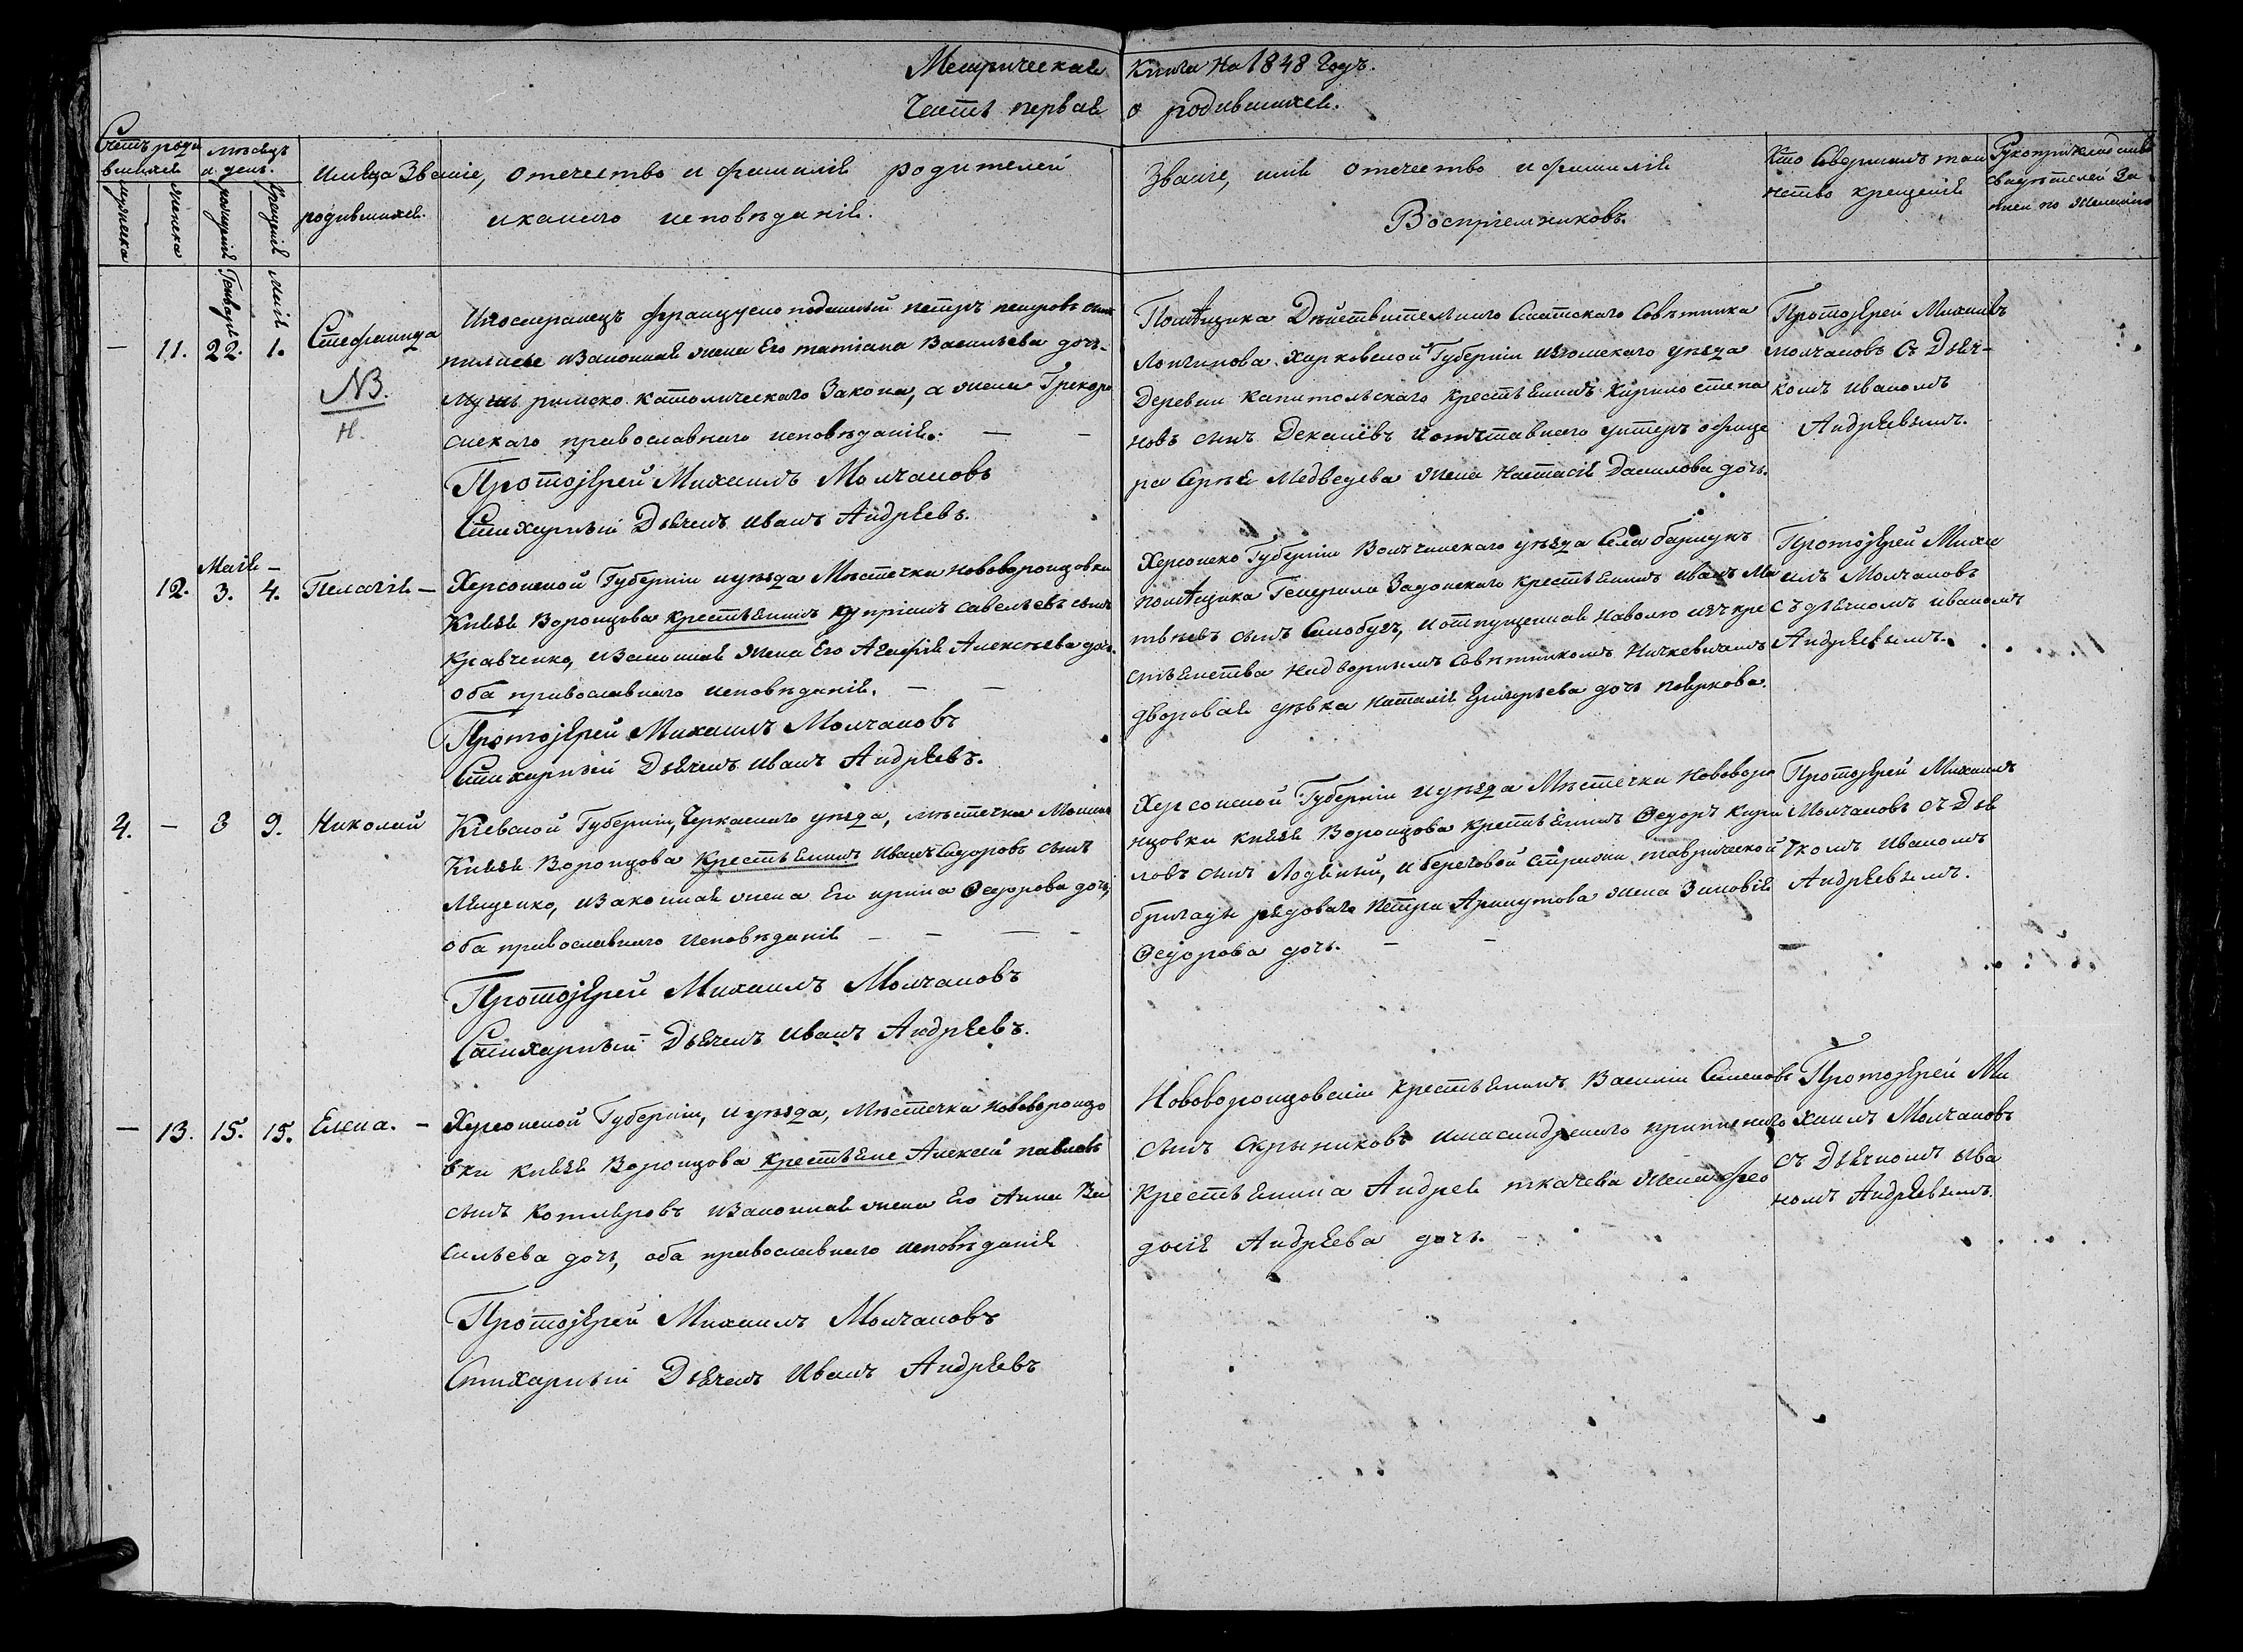 Метрическая Книга На 1848 Годъ.
Часть первая о родившихся.
Счетъ роди
вшихся
мѣсяцъ
и день.
мужеска
женска
рожденія
крещенія
Имена
родившихся.
Званіе, отечество и фамилія родителей
и какого исповѣданія.
Званіе, имя отечество и фамилія
Воспріемниковъ.
Кто Совершалъ таи
нство крещенія
Рукоприкладство
свидѣтелей За
писи по желанію
Генваря
Маія
— 11. 22. 1.
Стефанида
NB.
Н.
Иностранецъ французско подданный петръ петровъ сынъ
изаконная жена Его татіана Васильева дочь.
мужъ римско католическаго Закона, а жена Грекоро
сискаго православнаго исповѣданія. — —
Протоіерей Михаилъ Молчановъ
Стихарный Дьячекъ Иванъ Андреевъ.
Помѣщика Дѣйствительнаго Статскаго Совѣтника
Лонгинова Харковской Губерніи изюмскаго уѣзда
Деревни Капитольскаго крестьянинъ Кирило степа
новъ сынъ Деканіёвъ иотставнаго унтеръ офице
ра Сергѣя Медведева жена Настасія Данилова дочь.
Протоіерей Михаилъ
молчановъ Съ Дьяч-
комъ Иваномъ
Андреевымъ.
Маія —
12. 3. 4.
Пелагія —
Херсонской Губерніи иуѣзда Мѣстечка нововоронцовки
Князя Воронцова крестьянинъ купріянъ савельевъ сынъ
Кравченко, изаконная жена Его Агафія Алексѣева дочь.
оба православнаго исповѣданія. — —
Протоіерей Михаилъ Молчановъ
Стихарный Дьячекъ Иванъ Андреевъ.
Херсонско Губерніи уѣзда Села
помѣщика Генерала Задонскаго крестьянинъ Иванъ Ма
твѣевъ сынъ Слюбугъ, иотпущенная наволю изъ кре
стьянства Надворнымъ Совѣтникомъ Ничкевичамъ
дворовая дѣвка наталія Григорьева дочь
Протоіерей Миха
илъ Молчановъ
Съ дьячкомъ иваномъ
Андреевымъ.
4. — 3 9.
Николай
Кіевской Губерніи, Черкаскаго уѣзда, мѣстечка
Князя Воронцова Крестьянинъ Иванъ Сидоровъ сынъ
Лященко, изаконная жена Его ирина Ѳедорова дочь,
оба православнаго исповѣданія — — — —
Протоіерей Михаилъ Молчановъ
Стихарный Дьячекъ Иванъ Андреевъ.
Херсонской Губерніи иуѣзда Мѣстечка Нововоро
нцовки князя Воронцова крестьянинъ Ѳедоръ Кири
ловъ сынъ Лодяный, ибереговой Стражи таврической
бригады рядоваго Петра жена Зиновія
Ѳедорова дочь. — —
Протоіерей Михаилъ
Молчановъ съ Дья
чкомъ Иваномъ
Андреевымъ.
— 13. 15. 15.
Елена. —
Херсонской Губерніи, иуѣзда, Мѣстечка нововоронцо
вки князя Воронцова крестьяне Алексѣй павловъ
сынъ Котляровъ изаконная жена Его Анна Ва
сильева дочь, оба православнаго исповѣданія
Протоіерей Михаилъ Молчановъ
Стихарный Дьячекъ Иванъ Андреевъ
Нововоронцовскій крестьянинъ Василій Семеновъ
сынъ Скрыниковъ
крестьянина Андрея ткачева жена Фео
досія Андреева дочь. —
Протоіерей Ми
хаилъ Молчановъ
съ Дьячкомъ Ива
номъ Андреевымъ.